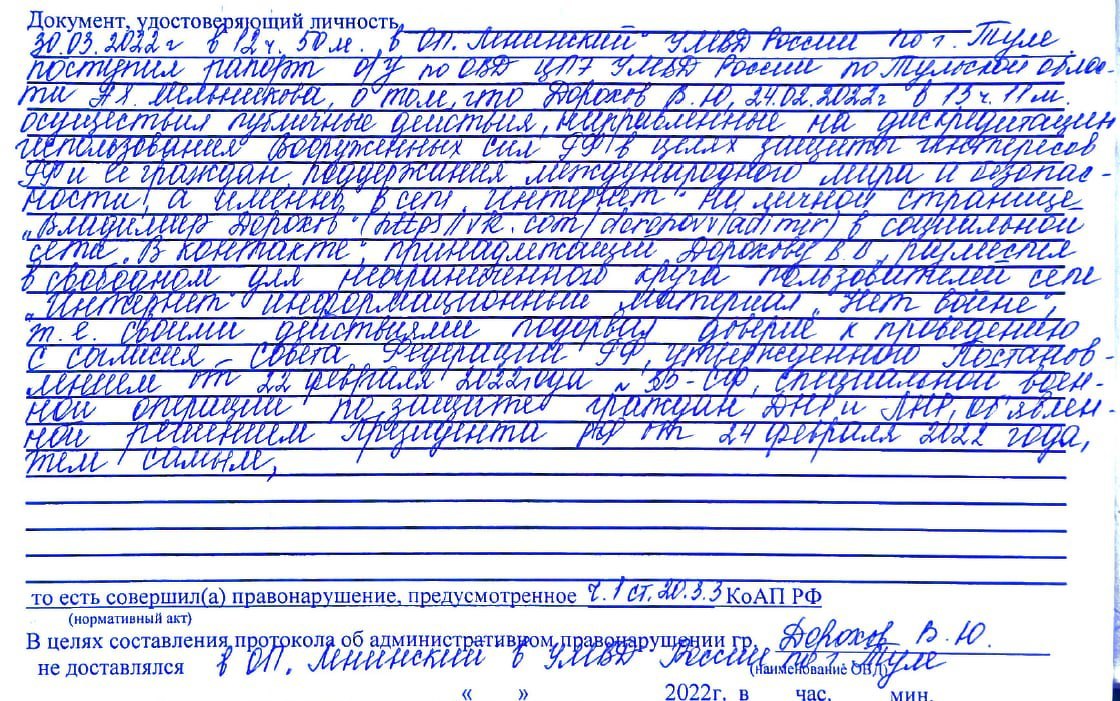 Документ, удостоверяющий личность
30.03.2022г в 12ч. 50м. в ОП „Ленинский" УМВД России по г. Туле
поступил рапорт о/у по ОВД ЦПЭ УМВД России по Тульской облас-
ти А.Я. Мельникова, о том, что Дорохов В.Ю, 24.02.2022г в 13ч. 11м.
осуществил публичные действия, направленные на дискредитацию
использования Вооруженных сил РФ в целях защиты интересов
РФ и ее граждан, поддержания международного мира и безопас-
ности, а именно, в сети „Интернет" на личной странице
„Владимир Дорохов" (https//vk.com/ в социальной
сети „В контакте", принадлежащий Дорохову В.Ю, разместил
в свободном для неограниченного круга пользователей сети
„Интернет" информационный материал „Нет войне",
т.е. своими действиями подорвал доверие к проведению
с согласия Совета Федерации РФ, утвержденного Постанов-
лением от 22 февраля 2022года № 35-СФ, специальной воен-
ной операции по защите граждан ДНР и ЛНР, объявлен-
ной решением Президента РФ от 24 февраля 2022 года,
тем самым,
то есть совершил(а) правонарушение, предусмотренное ч.1 ст.20.3.3 КоАП РФ
(нормативный акт)
В целях составления протокола об административном правонарушении гр. Дорохов В.Ю.
не доставлялся в ОП „Ленинский" в УМВД России по г. Туле
(наименование ОВД)
« » 2022г. в час. мин.